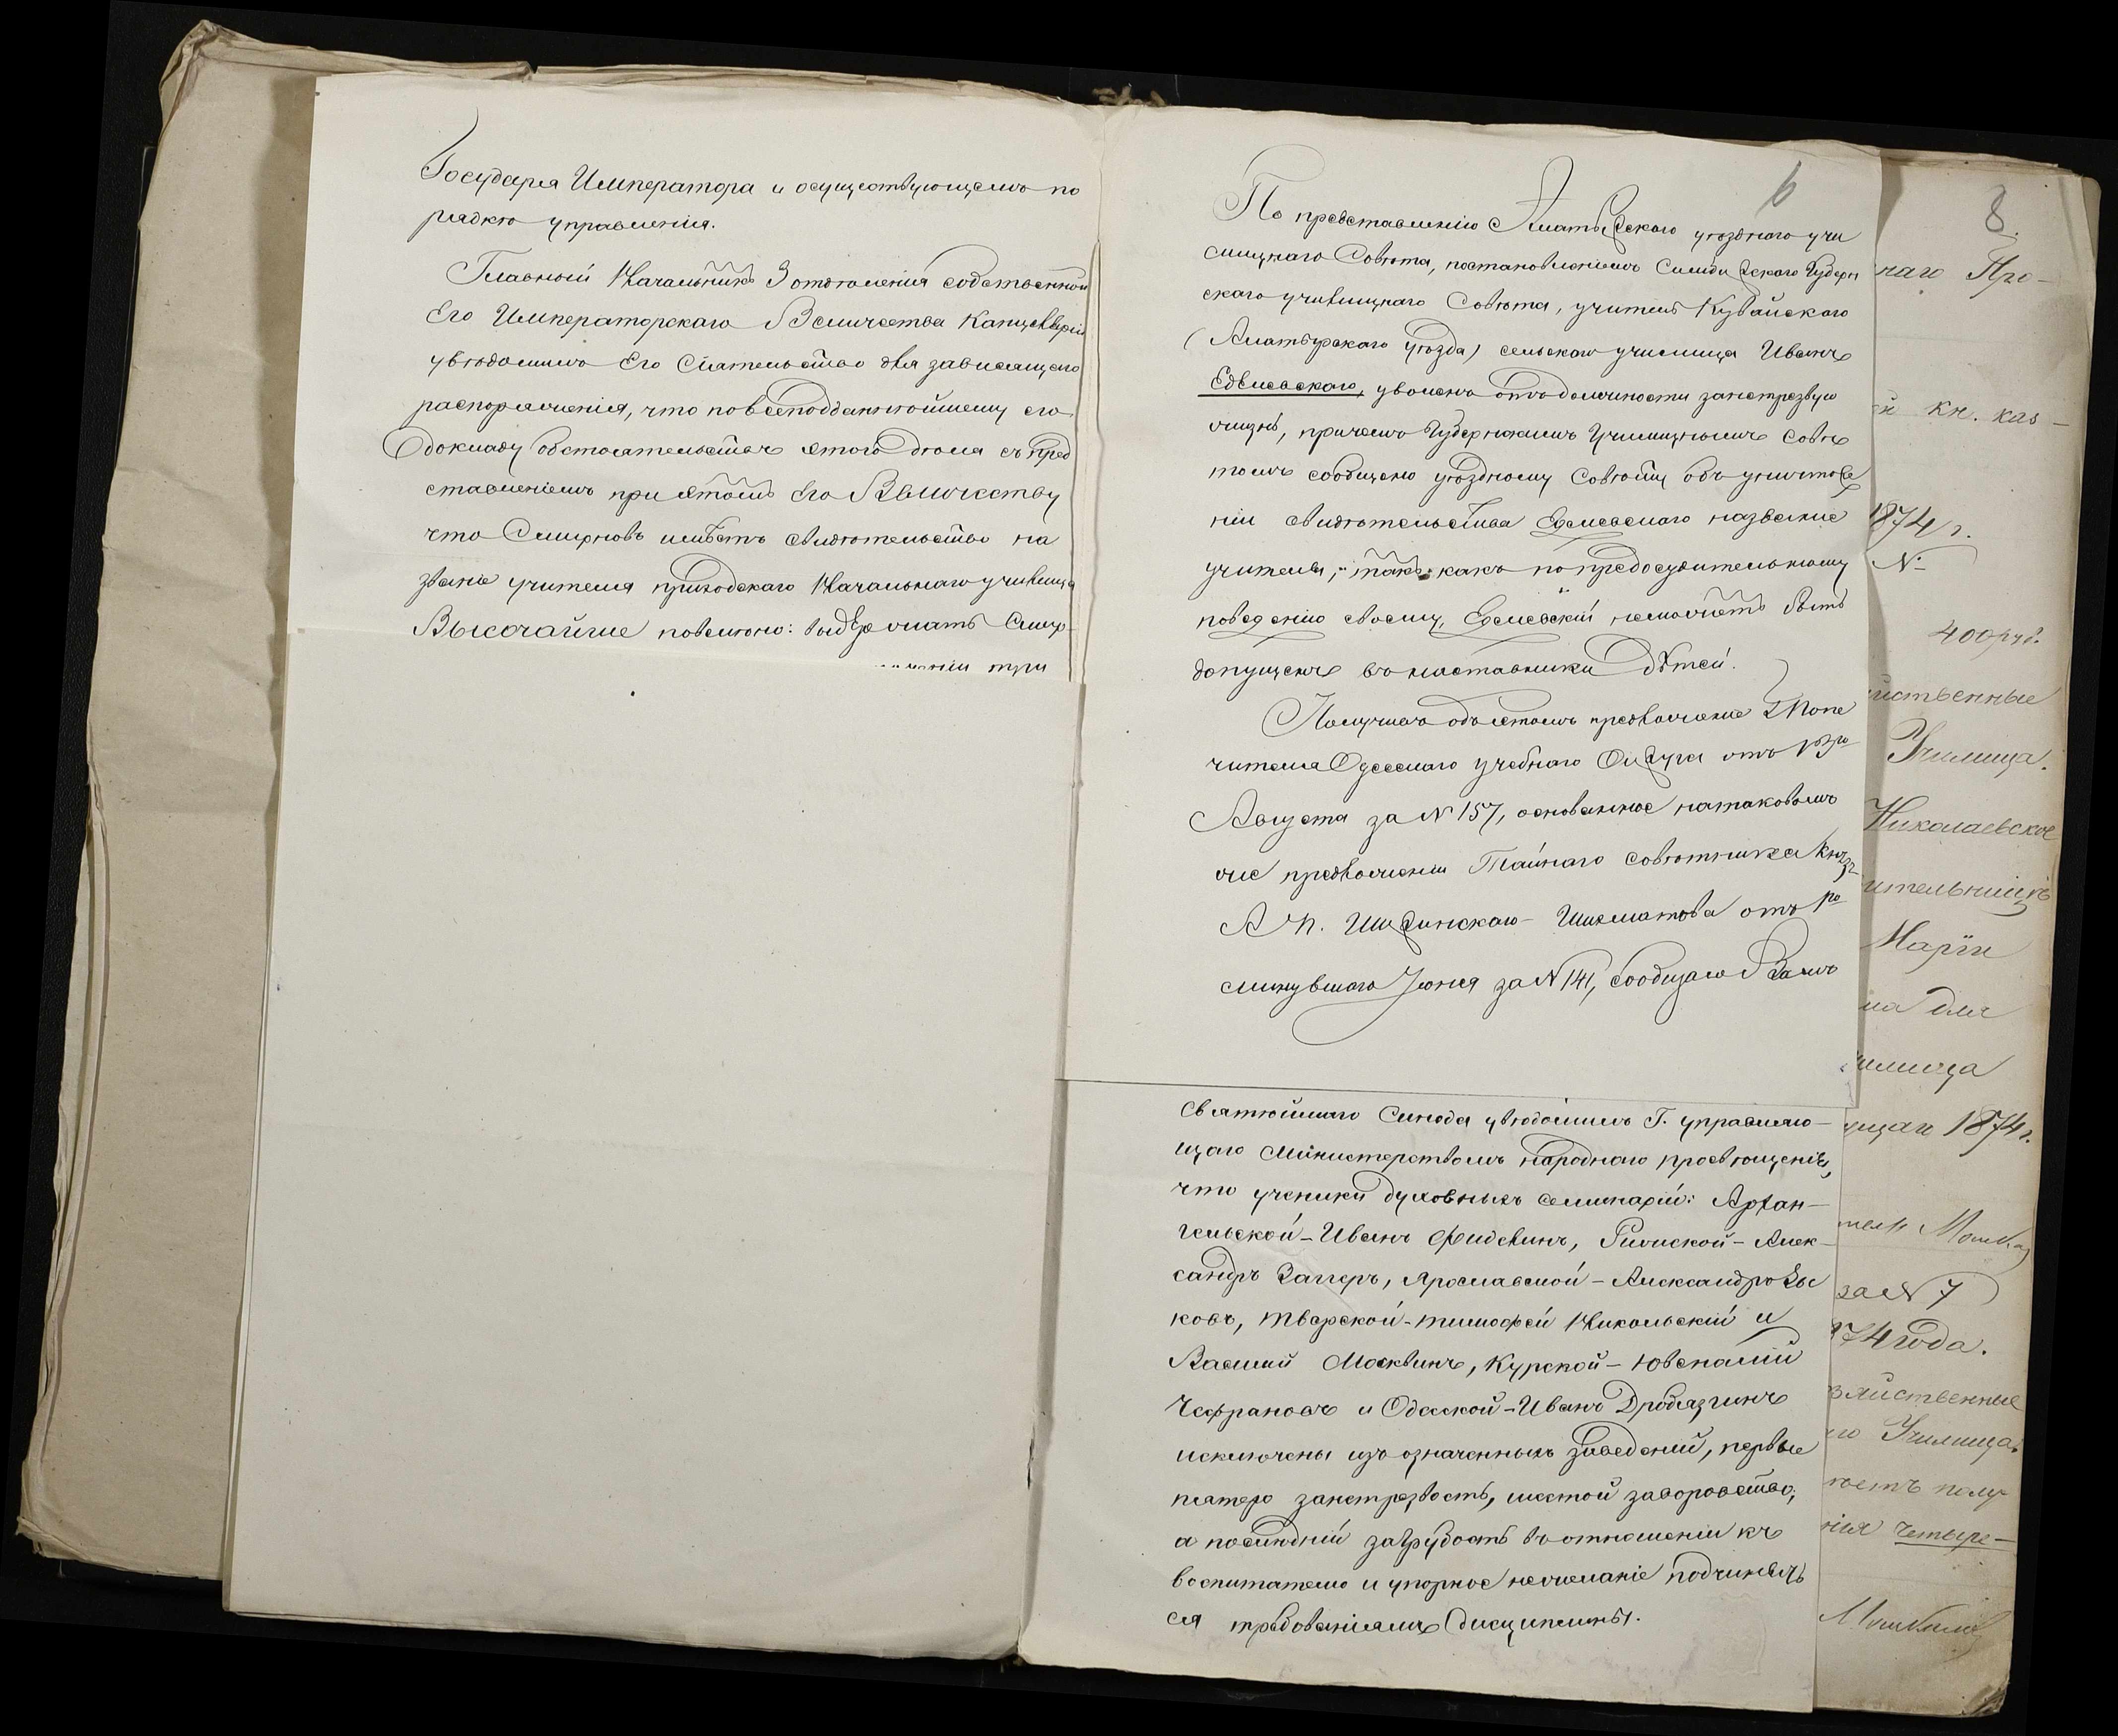 Государя Императора и осуществующемъ по
рядкѣ управленія.
Главный Начальникъ 3 отдѣленія собственной
Его Императорскаго Величества Канцеляріи
увѣдомилъ Его Сіятельство для зависящаго
распоряженія, что по всеподданнѣйшему его
докладу обстоятельствъ этого дѣла съ пред
ставленіемъ при этомъ Его Величеству
что Смирновъ имѣетъ свидѣтельство на
званіе учителя приходскаго Начальнаго училища
Высочайше повелѣно: выдержать Смир
6
По представленію Алатырскаго уѣзднаго учи
лищнаго Совѣта, постановленіемъ Симбирскаго Губерн
скаго училищнаго Совѣта, учитель Кувайскаго
(Алатырскаго уѣзда) сельскаго училища Иванъ
уволенъ отъ должности за нетрезвую
жизнь, причемъ Губернскимъ Училищнымъ Совѣ
томъ сообщено уѣздному Совѣту объ уничтоже
ніи свидѣтельства названіе
учителя, такъ какъ по предосудительному
поведенію своему, неможетъ быть
допущенъ въ наставники дѣтей.
Получивъ объ этомъ предложеніе Г Попе
чителя Одесскаго учебнаго Округа отъ
Августа за № 157, основанное на таковомъ
же предложеніи Тайнаго совѣтника Князя
А П. Ширинскаго-Шихматова отъ
минувшаго Іюня за № 141, сообщаю Вамъ
Святѣйшаго Синода увѣдомилъ Г. управляю-
щаго Министерствомъ народнаго просвѣщенія,
что ученики духовныхъ семинарій: Архан-
гельской-Иванъ Фиделинъ, Рижской-Алек-
сандръ Заггеръ, Ярославской-Александръ Зы
ковъ, Тверской-Тимофей Никольскій и
Василий Москвинъ, Курской-Ювеналій
Чефрановъ и Одесской-Иванъ Дробязгинъ
исключены изъ означенныхъ заведеній, первые
пятеро за нетрезвость, шестой за воровство,
а послѣдній за грубость въ отношеніи къ
воспитателю и упорное нежеланіе подчинять
ся требованіямъ дисциплины.
8.
наго Про-
кн. каз-
1874 г.
№
400 руб.
йственные
Училища.
Николаевское
Маріи
для
илища
ущаго 1874 г.
за № 7
74 года.
зяйственные
го Училища
полу
нія четыре-